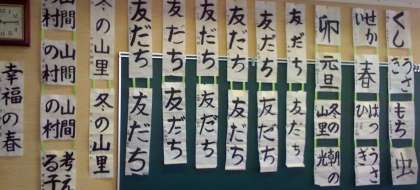 くし
うさぎ
もち
虫
せかい
春
はつ
ひ
うさぎ
卯
元旦
冬の山里
朝の光
友だち
友だち
友だち
友だち
友だち
友だち
友だち
友だち
友だち
友だち
友だち
友だち
冬の山里
冬の山里
山間の村
山間の村
山間の村
考える子
幸福の春